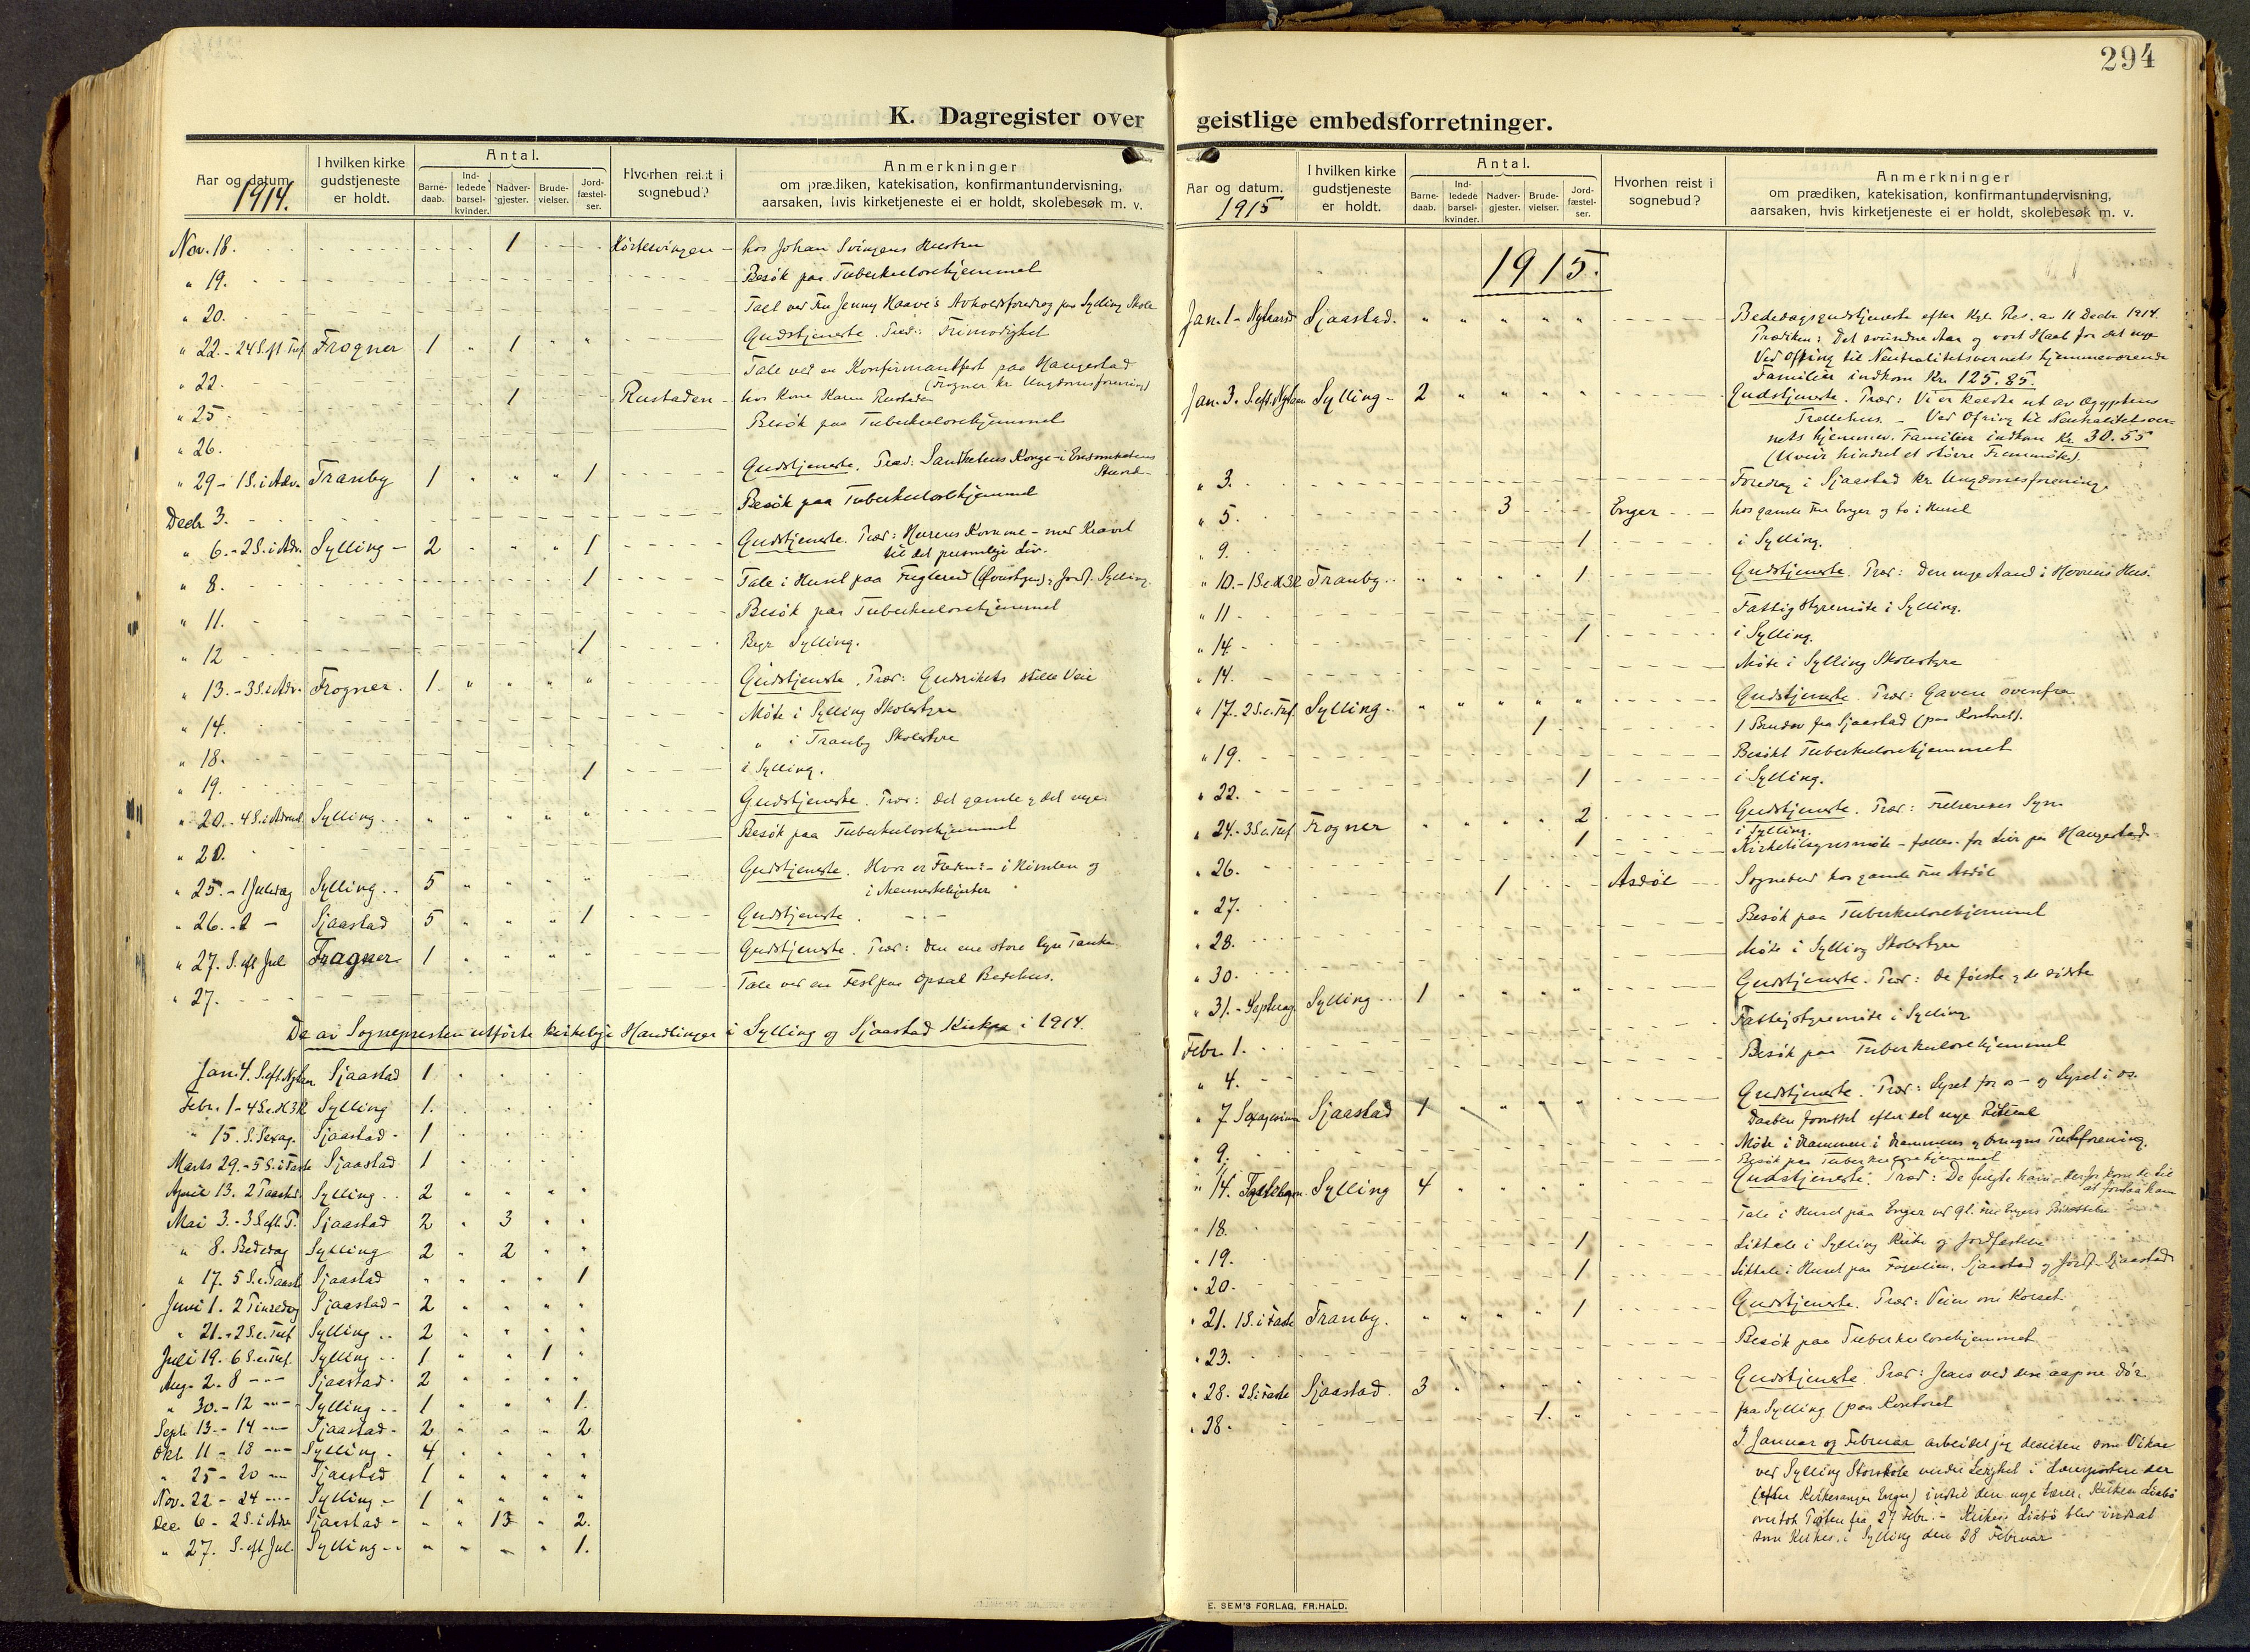 294
K. Dagregister over geistlige embedsforretninger.
Aar og datum.
1914.
I hvilken kirke gudstjeneste er holdt.
Antal.
Barne-daab.
Ind-ledede barsel-kvinder.
Nadver-gjester.
Brude-vielser.
Jord-fæstel-ser.
Hvorhen reist i sognebud?
Anmerkninger
om prædiken, katekisation, konfirmantundervisning,
aarsaken, hvis kirketjeneste ei er holdt, skolebesøk m. v.
Nov. 18. 1 hos Johan Svingens Hustru
" 19. Besök paa Tuberkulosehjemmet
" 20. Tael ved Fru Jenny Haave's Avholdsforedrag paa Sylling Skole
" 22. - 24 S. eft Tref. Frogner 1 " 1 " " Gudstjeneste. Præd: Frimodighet
" 22. Tale ved en Konfirmantfest paa Haugestad
(Frogner kr Ungdomsforening)
" 25. 1 Rustaden - hos Kone Karen Rustaden
" 26. Besök paa Tuberkulosehjemmet
" 29 - 1 S. i Adv. Tranby 1 " " " 1 Gudstjeneste. Præd: Sandhetens Konge - i Ensomhetens Stund -
Decbr 3. Besök paa Tuberkulosehjemmet
" 6. - 2 S. i Adv. Sylling - 2 " " " 1 Gudstjeneste. Præd: Herrens Komme - med Kravet
til det personlige Liv.
" 8. 1 Tale i Huset paa Fuglerud ; Jordf. Sylling.
" 11. Besök paa Tuberkulosehjemmet
" 12 1 Begr Sylling.
" 13. - 3 S. i Adv. Frogner. 1. " " " " Gudstjeneste. Præd: Gudsrikets stille Veie
" 14. Möte i Sylling Skolestyre
" 18. " i Tranby Skolestyre
" 19. 1 i Sylling.
" 20. - 4 S. i Advent. Sylling. " " " " " Gudstjeneste. Præd: Det gamle & det nye.
" 20. Besök paa Tuberkulosehjemmet
" 25. - 1 Juledag Sylling.. 5 " " " " Gudstjeneste. Hvor er Freden? - i Himlen og
i Menneskehjerter
" 26. - 2 - Sjaastad 5 " " " 1 Gudstjeneste. - " -
" 27. S. eft Jul Frogner 1 " " " " Gudstjeneste. Præd: Den ene store lyse Tanke
" 27. Tale ved en Fest paa Opsal Bedehus.
De av Sognepresten utförte kirkelige Handlinger i Sylling og Sjaastad Kirker i 1914.
Jan. 4. S. eft. Nytaar Sjaastad 1 " " " "
Febr. 1 - 4 S. e. H3K Sylling 1. " " " "
" 15. S. Sexag. Sjaastad - 1 " " " "
Marts 29. - 5 S. i Faste Sjaastad 1 " " " "
April 13. 2 Paaskd. Sylling.. 2 " " " "
Mai 3. - 3 S. eft. P. Sjaastad 2 " 3 " "
" 8. Bededag Sylling 2 " 2 " "
" 17. 5 S. e. Paaske Sjaastad " " " " 1
Juni 1. 2 Pinsedag Sjaastad - 2 " " " "
" 21. - 2 S. e. Tref Sylling.. 2 " " " "
Juli 19. 6 S. e. Tref. Sylling.. 1 " " 1 "
Aug. 2. 8 - " - Sjaastad. 2 " " " "
" 30. - 12 - " - Sylling.. 1 " " " 1.
Septr 13. - 14 - " - Sjaastad - 2 " " " 2
Oktb 11 - 18 - " - Sylling. 4 " " " "
" 25 - 20 - " - Sjaastad 1 " " " "
Nov. 22 - 24 - " - Sylling - 1 " " " "
Dec. 6 - 2 S. i Adv Sjaastad - " " 13 " 2.
" 27. S. eft Jul. Sylling - - " " " " 1.
Aar og datum.
1915
I hvilken kirke gudstjeneste er holdt.
Antal.
Barne-daab.
Ind-ledede barsel-kvinder.
Nadver-gjester.
Brude-vielser.
Jord-fæstel-ser.
Hvorhen reist i sognebud?
Anmerkninger
om prædiken, katekisation, konfirmantundervisning,
aarsaken, hvis kirketjeneste ei er holdt, skolebesøk m. v.
1915.
Jan. 1 - Nytaarsd Sjaastad. " " " " " Bededagsgudstjeneste efter Kgl. Res. av 11 Decbr 1914.
Prædiken: Det svundne Aar og vort Haab for det nye
Ved Ofring til Neutralitetsvernets hjemmeværende
Familier indkom Kr. 125.85.
Jan. 3. S. eft. Nytaar Sylling - 2 " " " " Gudstjeneste. Præd: Vi er kaldte ut av Ægyptens
Trællehus. - Ved Ofring til Neutralitetsver-
nets hjemmev. Familier indkom Kr. 30.55
(Uveir hindret et större Fremmöte).
" 3. Foredrag i Sjaastad kr. Ungdomsforening.
" 5. 3 Enger - hos gamle Fru Enger og to i Huset
" 9. 1 i Sylling.
" 10. - 1 S. e. H3K Tranby.. " " " " 1 Gudstjeneste. Præd: Den nye Aand i Herrens Hus.
" 11 - Fattigstyremöte i Sylling.
" 14 - 1 i Sylling.
" 14. Möte i Sylling Skolestyre
" 17. 2 S. e. Tref. Sylling - " " " " " Gudstjeneste. Præd: Gaven ovenfra
" 19. 1 1 Brudev fra Sjaastad (paa Kontoret).
Besökt Tuberkulosehjemmet
" 22. 1 i Sylling.
" 24. - 3 S. e. Tref. Frogner " " " " 2 Gudstjeneste. Præd: Frelserens Syn.
1 i Sylling.
" 26. Kirketilsynsmöte - fælles for Lier paa Haugestad
" 27. 1 Asdöl Sognebud hos gamle Fru Asdöl
" 28. Besök paa Tuberkulosehjemmet
" 30. Möte i Sylling Skolestyre
" 31. - Septuag. Sylling.. 1 " " " " Gudstjeneste. Præd: De förste & de sidste
Febr. 1. Fattigstyremöte i Sylling
" 4. Besök paa Tuberkulosehjemmet
" 7 Sexagesima Sjaastad 1 " " " " Gudstjeneste. Præd: Lyset for os - og Lyset i os.
Daaben forrettet efter det nye Ritual
" 9. Möte i Drammen i Drammens & Omegns Forening.
Besök paa Tuberkulosehjemmet
" 14. Fastelavn Sylling 4 " " " " Gudstjeneste. Præd: De fulgte ham - derfor kom de til
at forstaa ham
" 18. Tale i Huset paa Enger ved gl. Fru Engers Bisættelse
" 19. 1 Liktale i Sylling Kirke og Jordfæstelse
" 20. 1 Liktale i Huset paa , Sjaastad & Jordf. Sjaastad
" 21. 1 S. i Faste Tranby. " " " " 1 Gudstjeneste. Præd: Veien om Korset
" 23. Besök paa Tuberkulosehjemmet
" 28. 2 S. i Faste Sjaastad. 3 " " " " Gudstjeneste. Præd: Jesus ved den aapne Dör
" 28. 1. " fra Sylling (paa Kontoret
I Januar og Februar arbeidet jeg desuten som Vikar
ved Sylling Storskole under Ledighet i Lærerposten der
(efter Kirkesanger Enger) indtil den nye Lærer, Kirkes. Liabö
overtok Posten fra 27 Febr. - Kirkes. Liabö blev indsat
som Kirkes. i Sylling den 28 Februar
E. SEM'S FORLAG, FR.HALD.